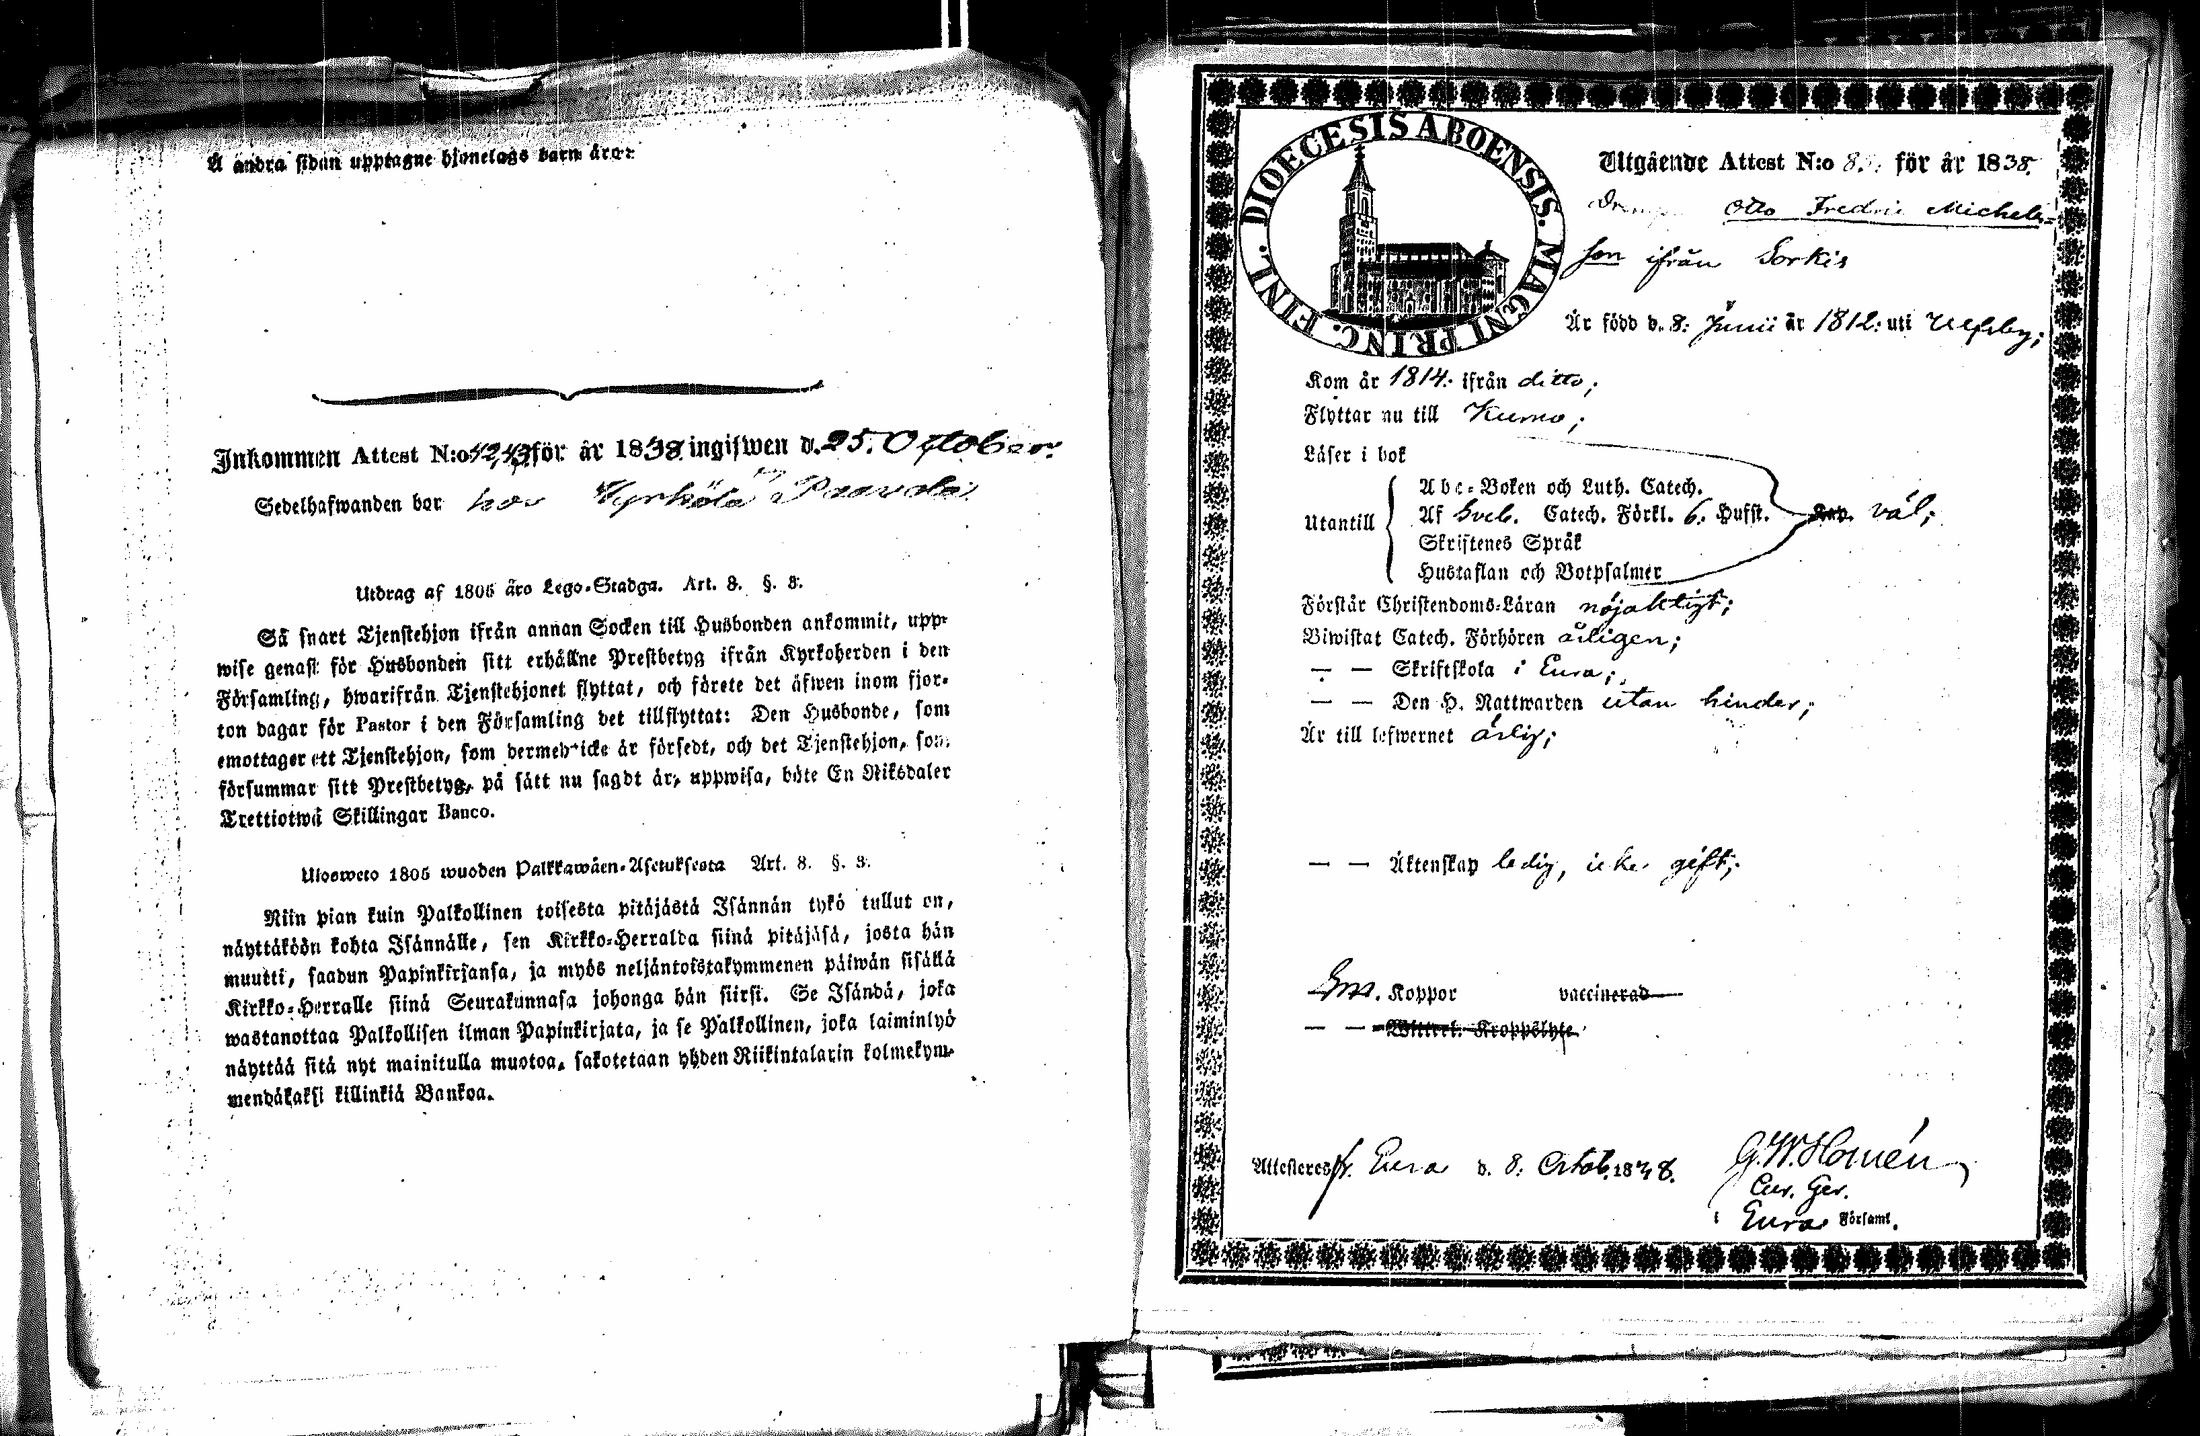 Å andra sidan upptagne hjonelags barn äro:
Inkommen Attest N:o 42,43 för år 1838 ingifwen d. 25. October.
Sedelhafwanden bor hos Kyrkölä Paavola
Utdrag af 1805 års Lego-Stadga. Art. 8. §. 3.
Så snart Tjenstehjon ifrån annan Socken till Husbonden ankommit, upp-
wise genast för Husbonden sitt erhållne Prestbetyg ifrån Kyrkoherden i den
Församling, hwarifrån Tjenstehjonet flyttat, och förete det äfwen inom fjor-
ton dagar för Pastor i den Församling det tillflyttat: Den Husbonde, som
emottager ett Tjenstehjon, som dermed icke är försedt, och det Tjenstehjon, som
försummar sitt Prestbetyg, på sätt nu sagdt är, uppwisa, böte En Riksdaler
Trettiotwå Skillingar Banco.
Ulosweto 1805 wuoden Palkkawäen-Asetuksesta Art. 8. §. 3.
Niin pian kuin Palkollinen toisesta pitäjästä Isännän tykö tullut on,
näyttäköön kohta Isännälle, sen Kirkko-Herralda siinä pitäjäsä, josta hän
muutti, saadun Papinkirjansa, ja myös neljäntoistakymmenen päiwän sisällä
Kirkko-Herralle siinä Seurakunnasa johonga hän siirsi. Se Isändä, joka
wastanottaa Palkollisen ilman Papinkirjata, ja se Palkollinen, joka laiminlyö
näyttää sitä nyt mainitulla muotoa, sakotetaan yhden Riikintalarin kolmekym-
mendäkaksi killinkiä Bankoa.
DIOECESIS ABOENSIS. MAGNI PRINC. FINL.
Utgående Attest N:o 8 för år 1838.
Otto Fredric Michels-
son ifrån Sorkis
Är född d. 8: Junii år 1812: uti Ulfsby;
Kom år 1814: ifrån ditto;
Flyttar nu till Kumo;
Läser i bok
Utantill
Abc-Boken och Luth. Catech.
Af Sveb. Catech. Förkl. 6. Hufst. Kap. väl;
Skriftenes Språk
Hustaflan och Botpsalmer
Förstår Christendoms-Läran nöjaktigt;
Biwistat Catech. Förhören årligen;
— — Skriftskola i Eura;
— — Den H. Nattwarden utan hinder;
Är till lefwernet ärlig;
— — Äktenskap ledig, icke gift;
Koppor vaccinerad
— — Wittrel. Kroppslyte
Attesteres fr. Eura d. 8: Octob. 1838.
G.W. Homén
Cur. Ger.
i Eura Församl.